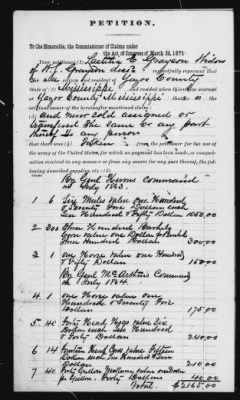 PETITION.
To the Honorable, the Commissioner of Claims under
the Act of Congress of March 3d, 1871:
Your petitioner (1) Laetitia E. Grayson Widow
of W. J. Grayson respectfully represents that
she is a resident of Yazoo County
State of (2) Mississippi and resided when this claim accrued
in Yazoo County Mississippi that is the
original owner of the hereinafter mentioned claim;
(3) and never sold assigned or
transferred the same or any part
thereof to any person
that there was (4) Taken from the petitioner for the use of
the army of the United States, for which no payment has been made, or compensation
received in any manner or from any source for any part thereof, the following
described property
By Genl Herron's Command
in July 1863.
1 6 Six Mules value one Hundred
& Seventy Five Dollars each
Six Hundred & Fifty Dollars 1050.00
2 300 Three Hundred Bushels
Corn value one Dollar per bushel
Three Hundred Dollars 300.00
3 1 One Horse value one Hundred
& Fifty Dollars 150.00
By Genl McArthur's Command
in 1864.
4 1 One Horse value one
Hundred & Seventy Five
Dollars 175.00
5 40 Forty Head Hogs value Six
Dollars each Two Hundred
& Forty Dollars 240.00
6 14 Fourteen Head Cows value Fifteen
Dollars each Two Hundred
Dollars 210.00
7 40 Forty Gallons Molasses value one Dollar
per Gallon Forty Dollars 40.00
Total $2165.00